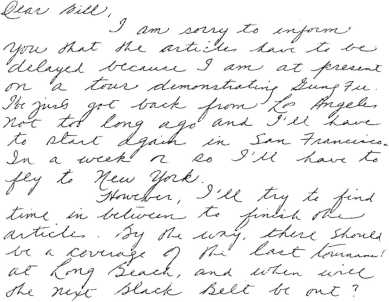 Dear Bill,
I am sorry to inform
you that the articles have to be
delayed because I am at present
on a tour demonstrating Gung Fu.
I've just got back from Los Angeles
not too long ago and I'll have
to start again in San Francisco.
In a week or so I'll have to
fly to New York.
However, I'll try to find
time in between to finish the
articles. By the way, there should
be a coverage of the last tournament
at Long Beach, and when will
the next Black Belt be out?